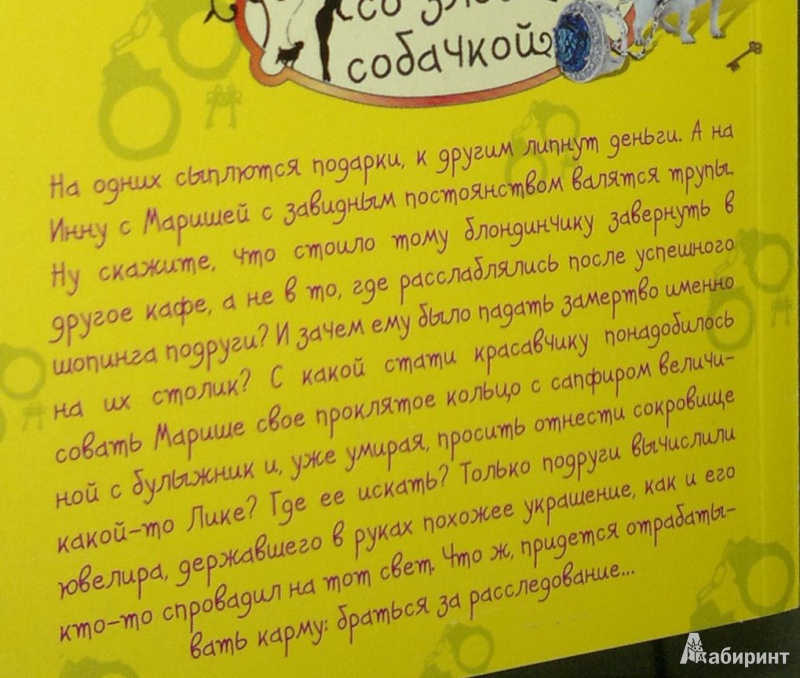 со
собачкой
На одних сыплются подарки, к другим липнут деньги. А на
Инну с Маришей с завидным постоянством валятся трупы.
Ну скажите, что стоило тому блондинчику завернуть в
другое кафе, а не в то, где расслаблялись после успешного
шопинга подруги? И зачем ему было падать замертво именно
на их столик? С какой стати красавчику понадобилось
совать Марише свое проклятое кольцо с сапфиром величи-
ной с булыжник и, уже умирая, просить отнести сокровище
какой-то Лике? Где ее искать? Только подруги вычислили
ювелира, державшего в руках похожее украшение, как и его
кто-то спровадил на тот свет. Что ж, придется отрабаты-
вать карму: браться за расследование...
Лабиринт